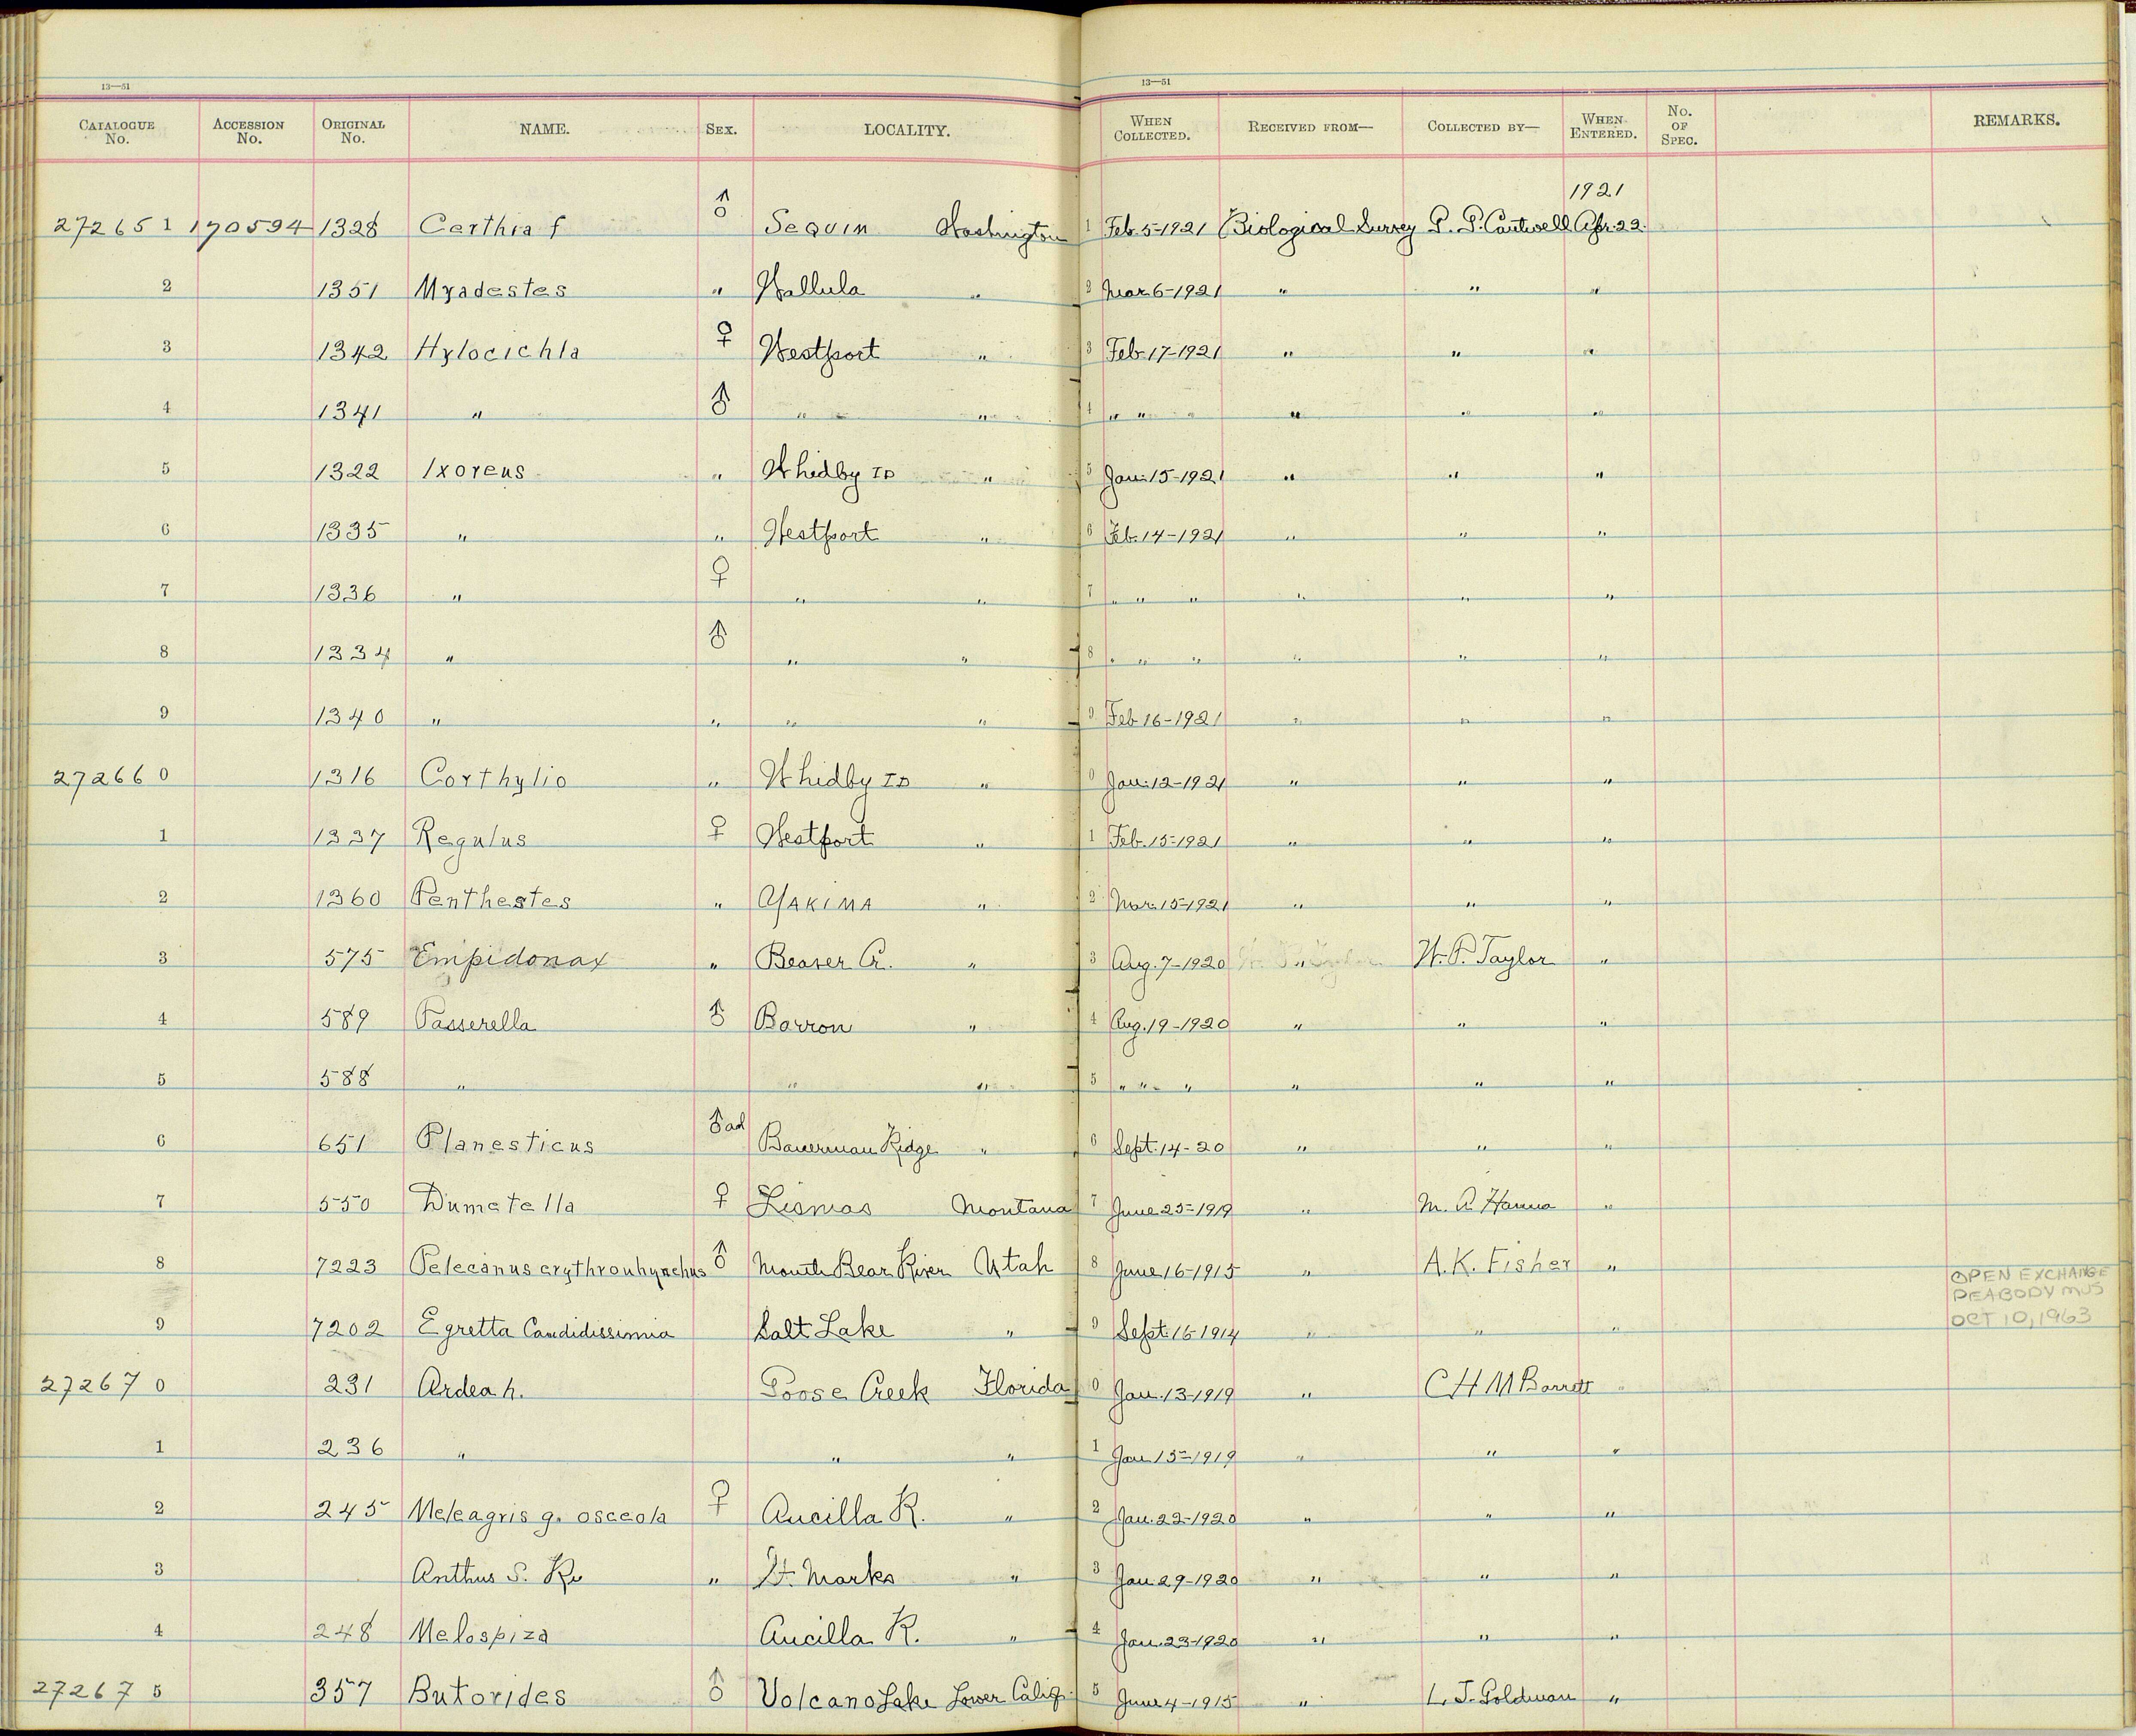 13—51 13—51
CATALOGUE No. ACCESSION No. ORIGINAL No. NAME. SEX. LOCALITY. WHEN COLLECTED. RECEIVED FROM— COLLECTED BY— WHEN ENTERED. No. OF SPEC. REMARKS.
1921
27265 1 170594 1328 Certhia f ♂ Sequim Washington 1 Feb. 5-1921 Biological Survey P. P. Cantwell Apr. 22
2 1351 Myadestes " Wallula " 2 Mar. 6-1921 " " "
3 1342 Hylocichla ♀ Westport " 3 Feb. 17-1921 " " "
4 1341 " ♂ " " 4 " " " " " "
5 1322 Ixoreus " Whidby Is " 5 Jan. 15-1921 " " "
6 1335 " " Westport " 6 Feb. 14-1921 " " "
7 1336 " ♀ " " 7 " " " " " "
8 1334 " ♂ " " 8 " " " " " "
9 1340 " " " " 9 Feb 16-1921 " " "
27266 0 1316 Corthylio " Whidby Is " 0 Jan. 12-1921 " " "
1 1337 Regulus ♀ Westport " 1 Feb. 15-1921 " " "
2 1360 Penthestes " Yakima " 2 Mar. 15-1921 " " "
3 575 Empidonax " Beaver Cr. " 3 Aug. 7-1920 " W. P. Taylor "
4 589 Passerella ♂ Barron " 4 Aug. 19-1920 " " "
5 588 " " " 5 " " " " " "
6 651 Planesticus ♂ ad Bauerman Ridge " 6 Sept. 14-20 " " "
7 550 Dumetella ♀ Lismas Montana 7 June 25-1919 " M. A. Hanna "
8 7223 Pelecanus erythrorhynchus ♂ Mouth Bear River Utah 8 June 16-1915 " A. K. Fisher " OPEN EXCHANGE
PEABODY MUS
OCT 10, 1963
9 7202 Egretta Candidissimia Salt Lake " 9 Sept. 16-1914 " " "
27267 0 231 Ardea h. Goose Creek Florida 0 Jan. 13-1919 " C H M Barrett "
1 236 " " " 1 Jan 15-1919 " " "
2 245 Meleagris g. osceola ♀ Aucilla R. " 2 Jan. 22-1920 " " "
3 Anthus S. Ru " St. Marks " 3 Jan 29-1920 " " "
4 248 Melospiza Aucilla R. " 4 Jan. 23-1920 " " "
27267 5 357 Butorides ♂ Volcano Lake Lower Calif. 5 June 4-1915 " L. J. Goldman "